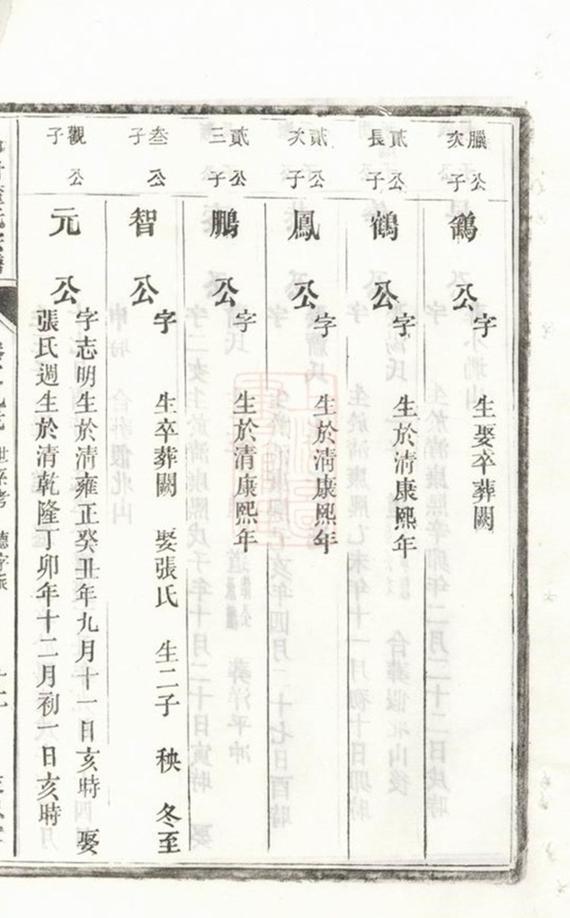 臘公次子
鵒公
字　生娶卒葬闕
貳公長子
鶴公
字　生於清康熙年
貳公次子
鳳公
字　生於清康熙年
貳公三子
鵬公
字　生於清康熙年
叁公子
智公
字　生卒葬闕　娶張氏　生二子　秧　冬至
觀公子
元公
字志明生於清雍正癸丑年九月十一日亥時　娶
張氏週生於清乾隆丁卯年十二月初一日亥時